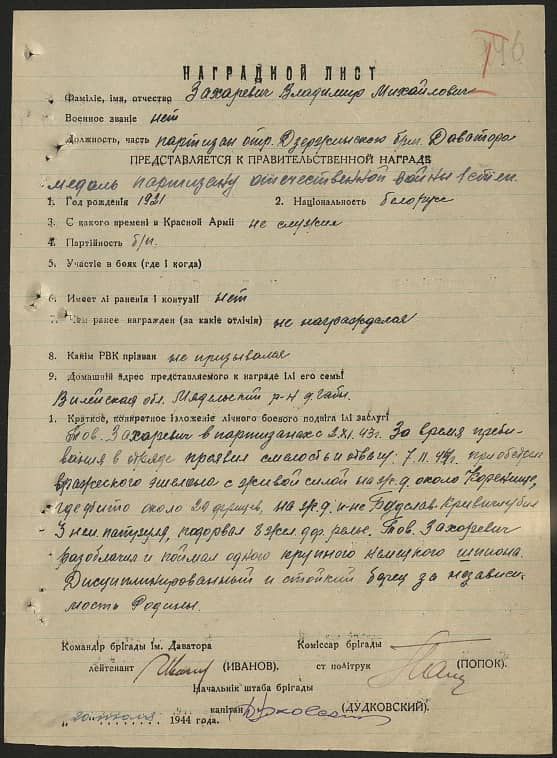 НАГРАДНОЙ ЛИСТ
Фаміліе, імя, отчество Захаревич Владимир Михайлович
Военное званіе нет
Должность, часть партизан отр. Дзержинского бриг. Даватора
ПРЕДСТАВЛЯЕТСЯ К ПРАВИТЕЛЬСТВЕННОЙ НАГРАДѢ
медаль партизану отечественной войны 1 степ.
1. Год рожденія 1921 2. Національность белорус
3. С какого времени в Красной Арміі не служил
4. Партійность б/п.
5. Участіе в боях (где і когда)
6. Имеет лі раненія і контузіі нет
7. Чем ранее награжден (за какіе отлічія) не награждался
8. Какім РВК прізван не призывался
9. Домашній адрес представляемого к награде ілі его семьі
Вилейская обл. Мядельский р-н д. Габы.
1. Краткое, конкретное ізложеніе лічного боевого подвіга ілі заслугі
Тов. Захаревич в партизанах с 2.XI.43г. За время пребы-
вания в отряде проявил смелость и отвагу: 7.II.44г. при обстреле
вражеского эшелона с живой силой на ж.д. около
где убито около 20 фрицев, на ж.д. л-не Будслав-Кривичи убил
3 нем. патруля, подорвал 8 жел. дор. рельс. Тов. Захаревич
разоблачил и поймал одного крупного немецкого шпиона.
Дисциплинированный и стойкий борец за независи-
мость Родины.
Командір брігады ім. Даватора Коміссар брігады
лейтенант (ИВАНОВ). ст політрук (ПОПОК).
Начальнік штаба брігады
капітан (ДУДКОВСКИЙ).
1944 года.